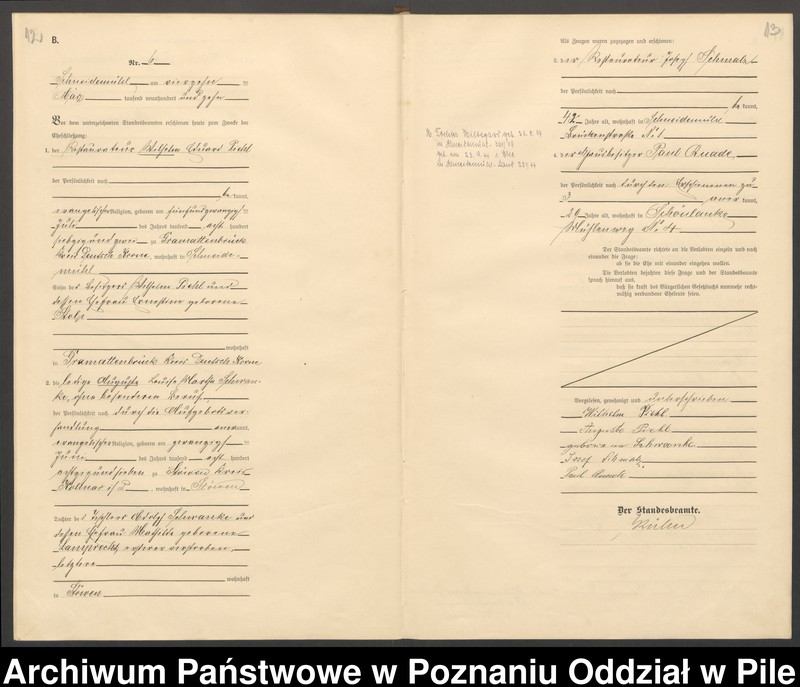 12.
B.
Nr. 6
Schneidemühl am vierzehn ten
März tausend neunhundert und zehn
Vor dem unterzeichneten Standesbeamten erschienen heute zum Zwecke der
Eheschließung:
1. der Restaurateur Wilhelm Eduard Piehl
der Persönlichkeit nach
be kannt,
evangelischer Religion, geboren am fünfundzwanzigsten
Juli des Jahres tausend acht hundert
siebzig und zwei zu Gramattenbrück
Kreis Deutsch Krone, wohnhaft in Schneide-
mühl
Sohn des Besitzers Wilhelm Piehl und
dessen Ehefrau Ernestine geborene
wohnhaft
in Gramattenbrück Kreis Deutsch Krone
2. die ledige Auguste Martha Schwan-
ke, ohne besonderen Beruf
der Persönlichkeit nach durch die Aufgebotsver-
handlung anerkannt,
evangelischer Religion, geboren am zwanzigsten
Juni des Jahres tausend acht hundert
achtzig und sieben zu Stöwen Kreis
Kolmar i/P. , wohnhaft in Stöwen
Tochter des Tischlers Adolph Schwanke und
dessen Ehefrau Mathilde geborene
Lamprecht, ersterer verstorben,
letztere
wohnhaft
in Stöwen
13
Als Zeugen waren zugezogen und erschienen:
3. der Restaurateur Josef Schmalz
der Persönlichkeit nach
be kannt,
42 Jahre alt, wohnhaft in Schneidemühl
Brückenstraße Nr. 1
4. der Paul Quade
der Persönlichkeit nach durch den Erschienenen zu
3 aner kannt,
29 Jahre alt, wohnhaft in Schönlanke
Mühlenweg Nr. 4
Der Standesbeamte richtete an die Verlobten einzeln und nach
einander die Frage:
ob sie die Ehe mit einander eingehen wollen.
Die Verlobten bejahten diese Frage und der Standesbeamte
sprach hierauf aus,
daß sie kraft des Bürgerlichen Gesetzbuchs nunmehr recht-
mäßig verbundene Eheleute seien.
Vorgelesen, genehmigt und unterschrieben
Wilhelm Piehl
Auguste Piehl
geborene Schwanke
Josef Schmalz
Paul Quade
Der Standesbeamte.
Archiwum Państwowe w Poznaniu Oddział w Pile